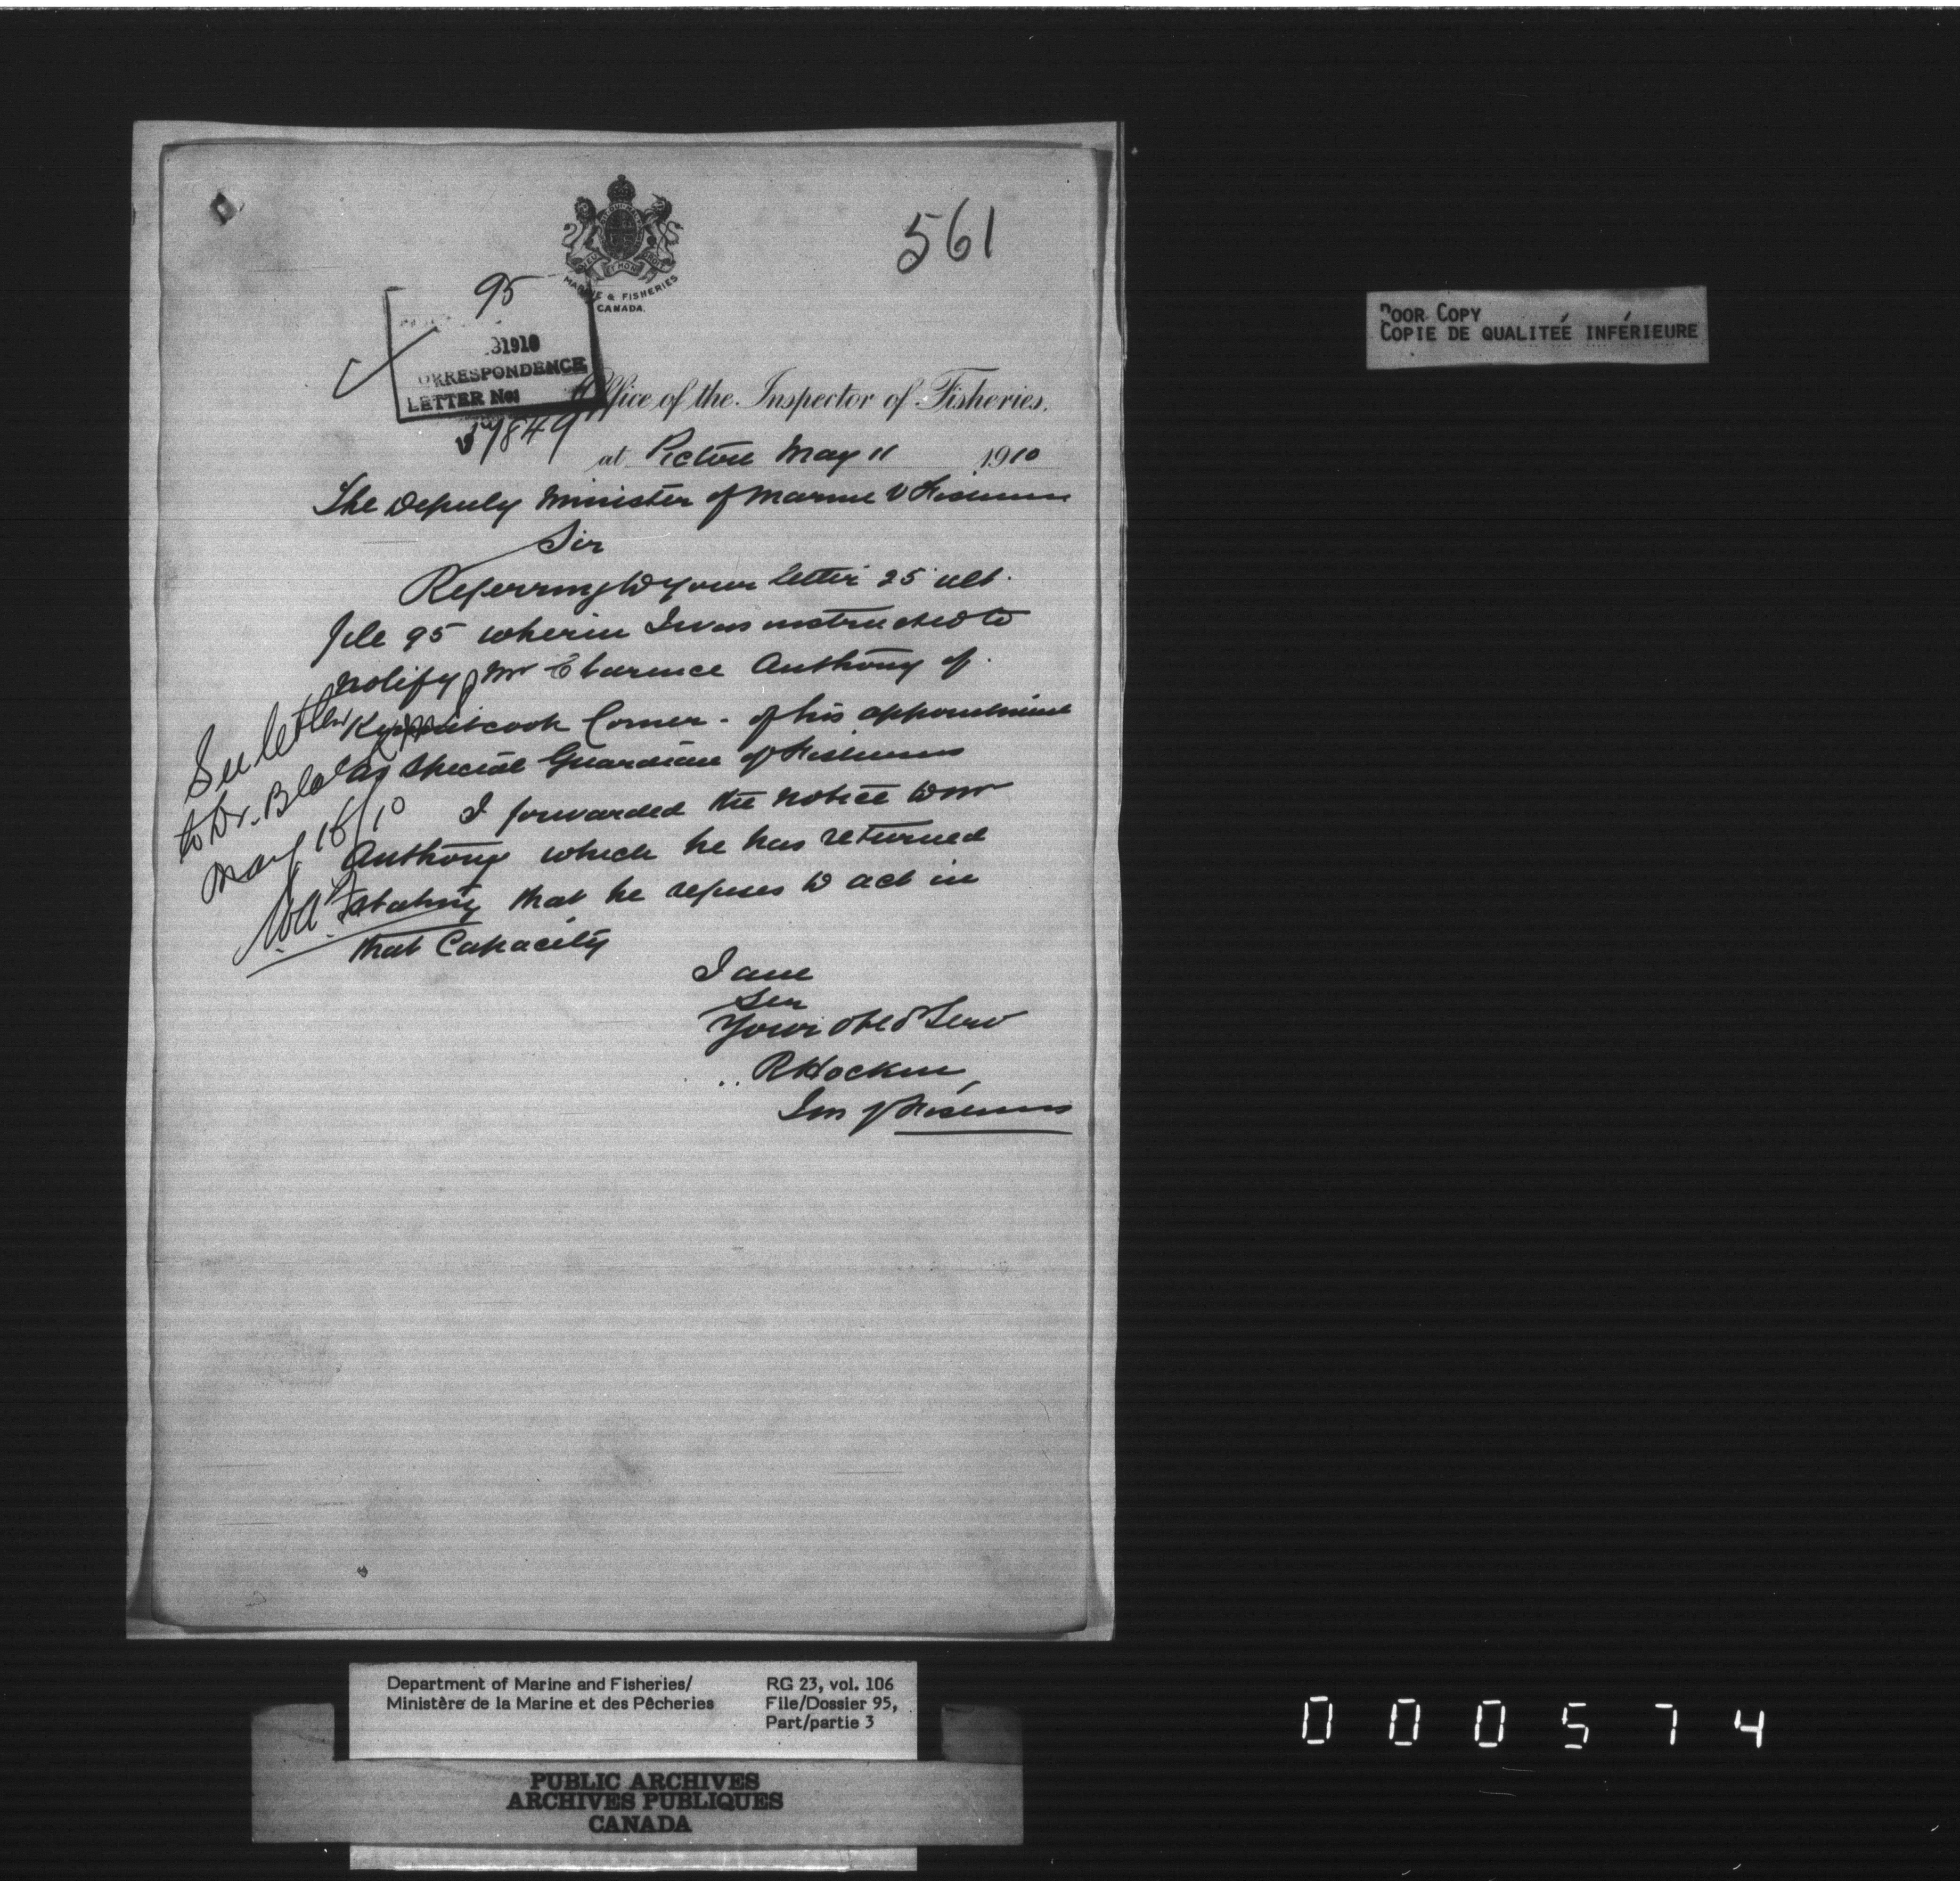 561
MARINE & FISHERIES
CANADA.
95
1910
CORRESPONDENCE
LETTER No:
Office of the Inspector of Fisheries,
at Pictou May 11 1910
The Deputy Minister of Marine & Fisheries
Sir
Referring to your letter 25 ult.
file 95 wherin I was instructed to
notify Mr Clarence Anthony of
Kennetcook Corner - of his appointment
as Special Guardian of Fisheries
I forwarded the notice to Mr
Anthony which he has returned
stating that he refuses to act in
that Capacity
I am
Sir
Your obed Serv
R Hockin
Ins of Fisheries
See letter
to Dr. Black
May 16/10
POOR COPY
COPIE DE QUALITEÉ INFÉRIEURE
Department of Marine and Fisheries/
Ministère de la Marine et des Pêcheries
RG 23, vol. 106
File/Dossier 95,
Part/partie 3
PUBLIC ARCHIVES
ARCHIVES PUBLIQUES
CANADA
000574